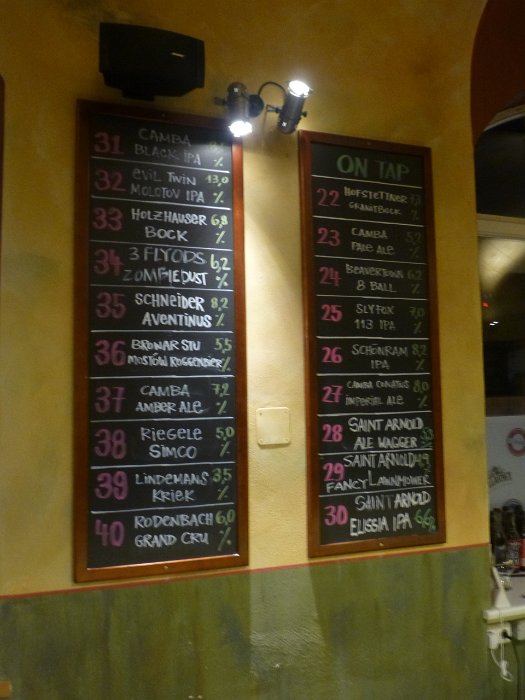 31 CAMBA
BLACK IPA %
32 EVIL TWIN 13,0
MOLOTOV IPA %
33 HOLZHAUSER 6,8
BOCK %
34 3 FLYODS 6,2
ZOMFIEDUST %
35 SCHNEIDER 8,2
AVENTINUS %
36 BROWAR STU 5,5
MOSTÓW ROGGENBIER %
37 CAMBA 7,2
AMBER ALE %
38 RIEGELE 5,0
SIMCO %
39 LINDEMANS 3,5
KRIEK %
40 RODENBACH 6,0
GRAND CRU %
ON TAP
22 HOFSTETTNER
GRANITBOCK %
23 CAMBA 5,2
PALE ALE %
24 BEAVERTOWN 6,2
8 BALL %
25 SLYFOX 7,0
113 IPA %
26 SCHÖNRAM 8,2
IPA %
27 CAMBA 8,0
IMPERIAL ALE %
28 SAINT ARNOLD
ALE WAGGER
29 SAINT ARNOLD 4,9
FANCY LAWNMOWER %
30 SAINT ARNOLD
ELISSIA IPA 6,6%